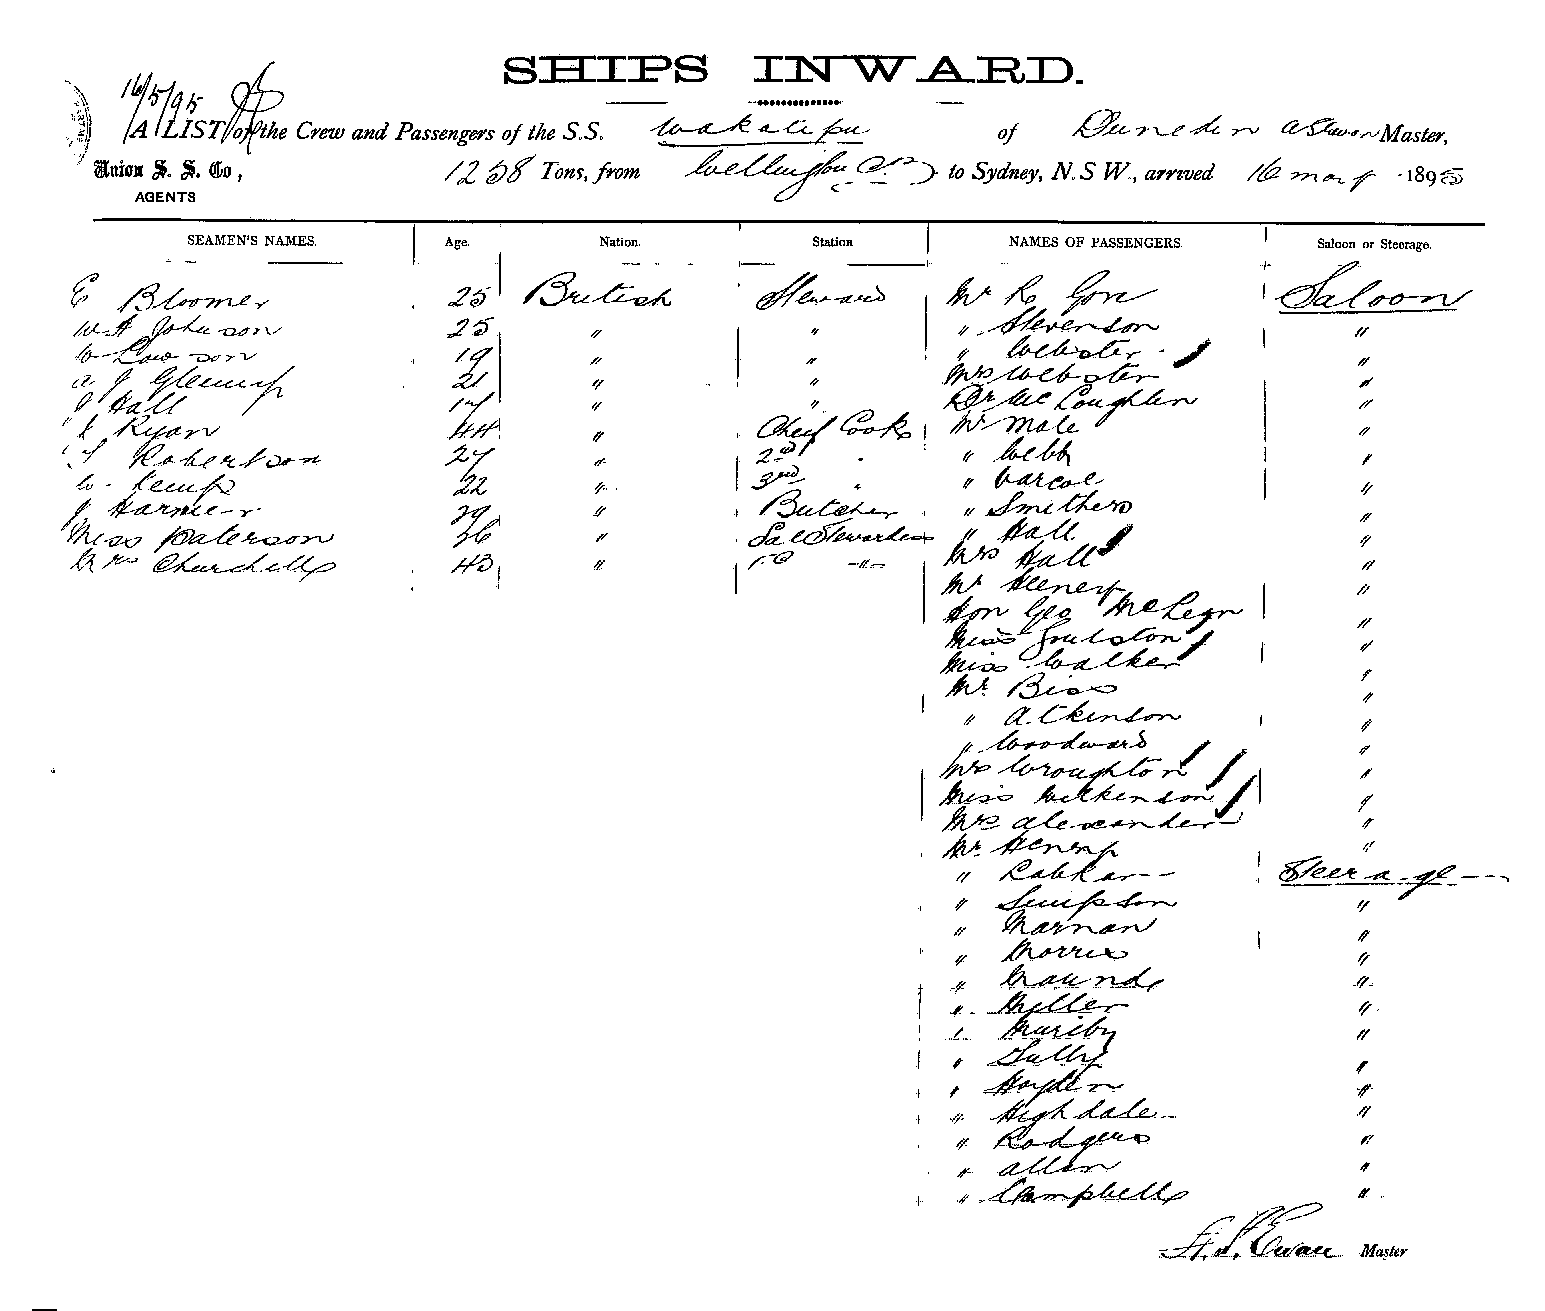 SHIPS INWARD.
16/5/95
A LIST of the Crew and Passengers of the S.S. Wakatipu of Dunedin Master,
Union S. S. Co, 1258 Tons, from Wellington to Sydney, N.S.W., arrived 16 May 1895
AGENTS
SEAMEN'S NAMES. Age. Nation. Station NAMES OF PASSENGERS. Saloon or Steerage.
E Bloomer 25 British Steward Mr R Gore Saloon
W A Johnson 25 " " " Stevenson "
W Lawson 19 " " " Webster "
A J 21 " " Mrs Webster "
J Hall 17 " " Dr McLoughlin "
J Ryan 44 " Chief Cook Mr Male "
T Robertson 27 " 2nd " " Webb "
W. Kemp 22 " 3rd " " Varcoe "
J Harmer 29 " Butcher " Smithers "
Miss Paterson 36 " Sal Stewardess " Hall "
Mrs Churchill 43 " " Mrs Hall "
Mr Heenery "
Hon Geo McLean "
Miss "
Miss Walker "
Mr. Biss "
" Atkinson "
" Woodward "
Mrs Wroughton "
Miss Wilkinson "
Mrs Alexander "
Mr. Henery "
" Steerage
" Simpson "
" Marnan "
" Morris "
" Maunds "
" Miller "
" "
" Tully "
" Hayden "
" Highdale "
" Rodgers "
" Allan "
" Campbell "
Master